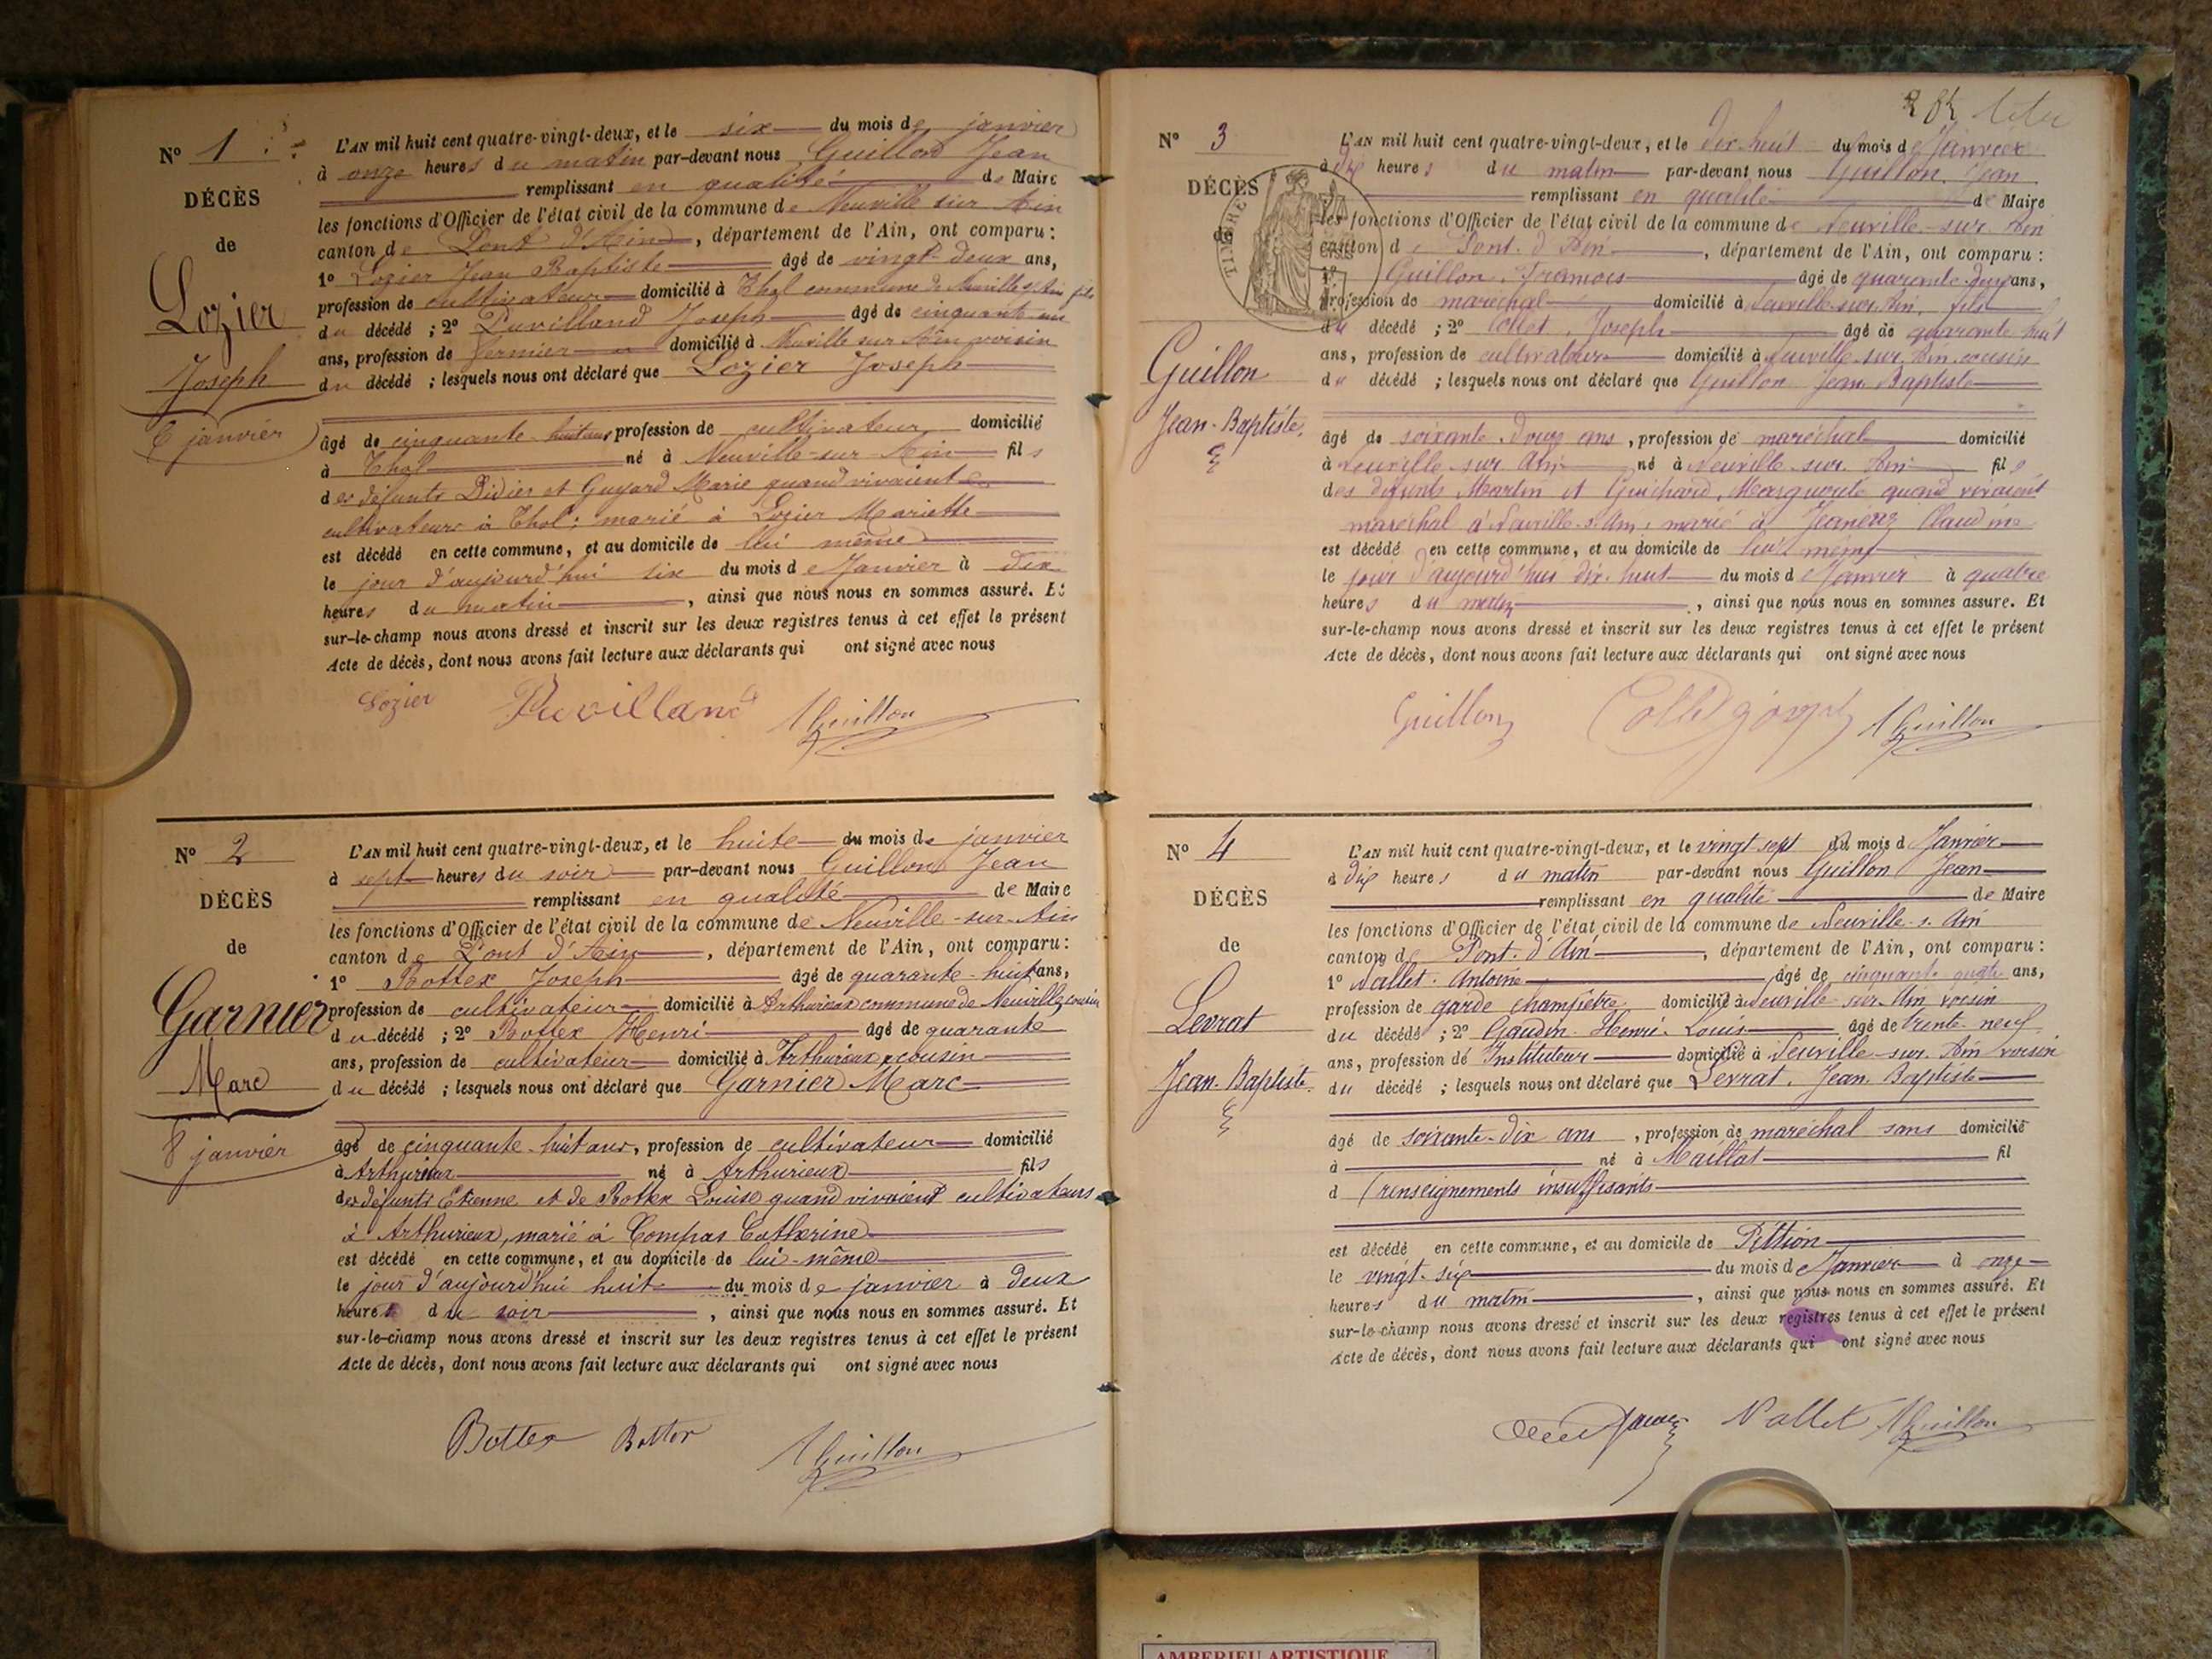 N° 1
DÉCÈS
de
Lozier
Joseph
6 janvier
L'AN mil huit cent quatre-vingt-deux, et le six du mois de janvier
à onze heures du matin par-devant nous Guillon Jean
remplissant en qualité de Maire
les fonctions d'Officier de l'état civil de la commune de Neuville sur Ain
canton de Pont d'Ain, département de l'Ain, ont comparu :
1° Lozier Jean Baptiste âgé de vingt-deux ans,
profession de cultivateur domicilié à Thol commune de Neuville s/ Ain fils
du décédé ; 2° Puvilland Joseph âgé de cinquante un
ans, profession de fermier domicilié à Neuville sur Ain voisin
du décédé ; lesquels nous ont déclaré que Lozier Joseph
âgé de cinquante huit ans profession de cultivateur domicilié
à Thol né à Neuville-sur-Ain fils
des défunts Didier et Guyard Marie quand vivaient
cultivateurs à Thol ; marié à Lozier Mariette
est décédé en cette commune, et au domicile de lui même
le jour d'aujourd'hui six du mois de Janvier à dix
heures du matin, ainsi que nous nous en sommes assuré. Et
sur-le-champ nous avons dressé et inscrit sur les deux registres tenus à cet effet le présent
Acte de décès, dont nous avons fait lecture aux déclarants qui ont signé avec nous
Lozier Puvilland Guillon
N° 2
DÉCÈS
de
Garnier
Marc
8 janvier
L'AN mil huit cent quatre-vingt-deux, et le huite du mois de janvier
à sept heures du soir par-devant nous Guillon Jean
remplissant en qualité de Maire
les fonctions d'Officier de l'état civil de la commune de Neuville-sur-Ain
canton de Pont d'Ain, département de l'Ain, ont comparu :
1° Bottex Joseph âgé de quarante-huit ans,
profession de cultivateur domicilié à Arthurieux commune de Neuville, cousin
du décédé ; 2° Bottex Henri âgé de quarante
ans, profession de cultivateur domicilié à Arthurieux, cousin
du décédé ; lesquels nous ont déclaré que Garnier Marc
âgé de cinquante-huit ans, profession de cultivateur domicilié
à Arthurieux né à Arthurieux fils
des défunts Etienne et de Bottex Louise quand vivaient cultivateurs
à Arthurieux, marié à Compas Catherine
est décédé en cette commune, et au domicile de lui-même
le jour d'aujourd'hui huit du mois de janvier à deux
heures du soir, ainsi que nous nous en sommes assuré. Et
sur-le-champ nous avons dressé et inscrit sur les deux registres tenus à cet effet le présent
Acte de décès, dont nous avons fait lecture aux déclarants qui ont signé avec nous
Bottex Bottex Guillon
N° 3
DÉCÈS
de
TIMBRE
Guillon
Jean-Baptiste.
L'AN mil huit cent quatre-vingt-deux, et le dix huit du mois de Janvier
à dix heures du matin par-devant nous Guillon Jean
remplissant en qualité de Maire
les fonctions d'Officier de l'état civil de la commune de Neuville-sur-Ain
canton de Pont. d'Ain, département de l'Ain, ont comparu :
1° Guillon. François âgé de quarante-deux ans,
profession de maréchal domicilié à Neuville-sur-Ain, fils
du décédé ; 2° Collet. Joseph âgé de quarante huit
ans, profession de cultivateur domicilié à Neuville-sur-Ain cousin
du décédé ; lesquels nous ont déclaré que Guillon Jean Baptiste
âgé de soixante-douze ans, profession de maréchal domicilié
à Neuville-sur-Ain né à Neuville-sur-Ain fils
des défunts Martin et Guichard, Marguerite quand vivaient
maréchal à Neuville-s.-Ain, marié à Claudine
est décédé en cette commune, et au domicile de lui-même
le jour d'aujourd'hui dix-huit du mois de Janvier à quatre
heures du matin, ainsi que nous nous en sommes assuré. Et
sur-le-champ nous avons dressé et inscrit sur les deux registres tenus à cet effet le présent
Acte de décès, dont nous avons fait lecture aux déclarants qui ont signé avec nous
Guillon Collet Guillon
N° 4
DÉCÈS
de
Levrat
Jean-Baptiste.
L'AN mil huit cent quatre-vingt-deux, et le vingt sept du mois d Janvier
à dix heures du matin par-devant nous Guillon Jean
remplissant en qualité de Maire
les fonctions d'Officier de l'état civil de la commune de Neuville-s.-Ain
canton de Pont. d'Ain, département de l'Ain, ont comparu :
1° Nallet. Antoine âgé de cinquante quatre ans,
profession de garde champêtre domicilié à Neuville-sur-Ain voisin
du décédé ; 2° Gaudin. Henri. Louis âgé de trente-neuf
ans, profession de Instituteur domicilié à Neuville-sur-Ain voisin
du décédé ; lesquels nous ont déclaré que Levrat. Jean. Baptiste
âgé de soixante-dix ans, profession de maréchal sans domicilié
à né à Maillat fil
d (renseignements insuffisants
est décédé en cette commune, et au domicile de Pittion
le vingt-six du mois de Janvier à onze
heures du matin, ainsi que nous nous en sommes assuré. Et
sur-le-champ nous avons dressé et inscrit sur les deux registres tenus à cet effet le présent
Acte de décès, dont nous avons fait lecture aux déclarants qui ont signé avec nous
Nallet Guillon
AMBERIEU ARTISTIQUE